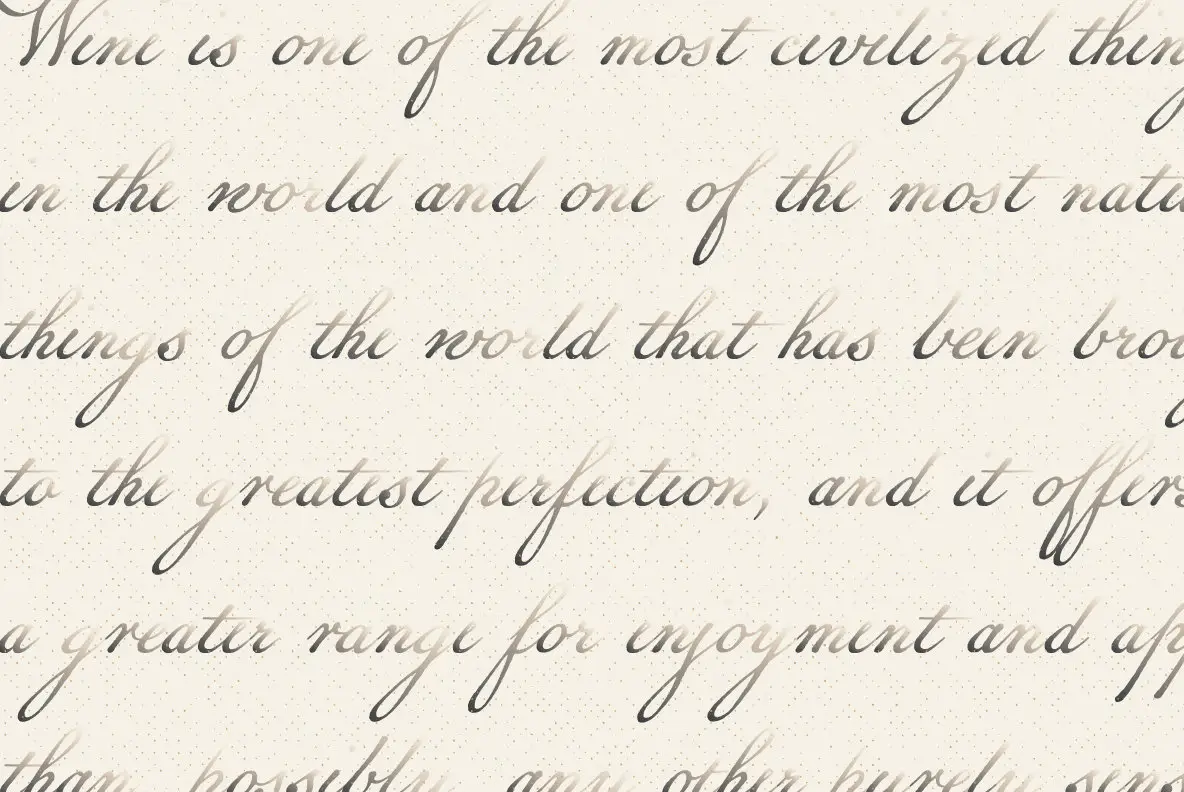 Wine is one of the most civilized thing
in the world and one of the most natu
things of the world that has been brou
to the greatest perfection, and it offers
a greater range for enjoyment and ap
than possibly any other purely sens